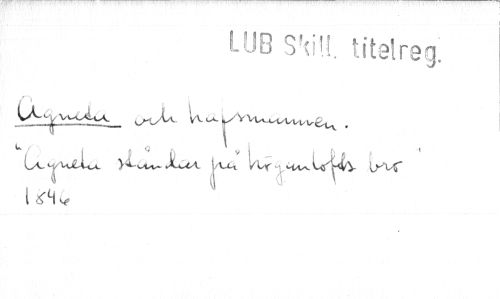 LUB Skill. titelreg.
Agneta och hafsmannen.
"Agneta ständar på höganlofts bro"
1846